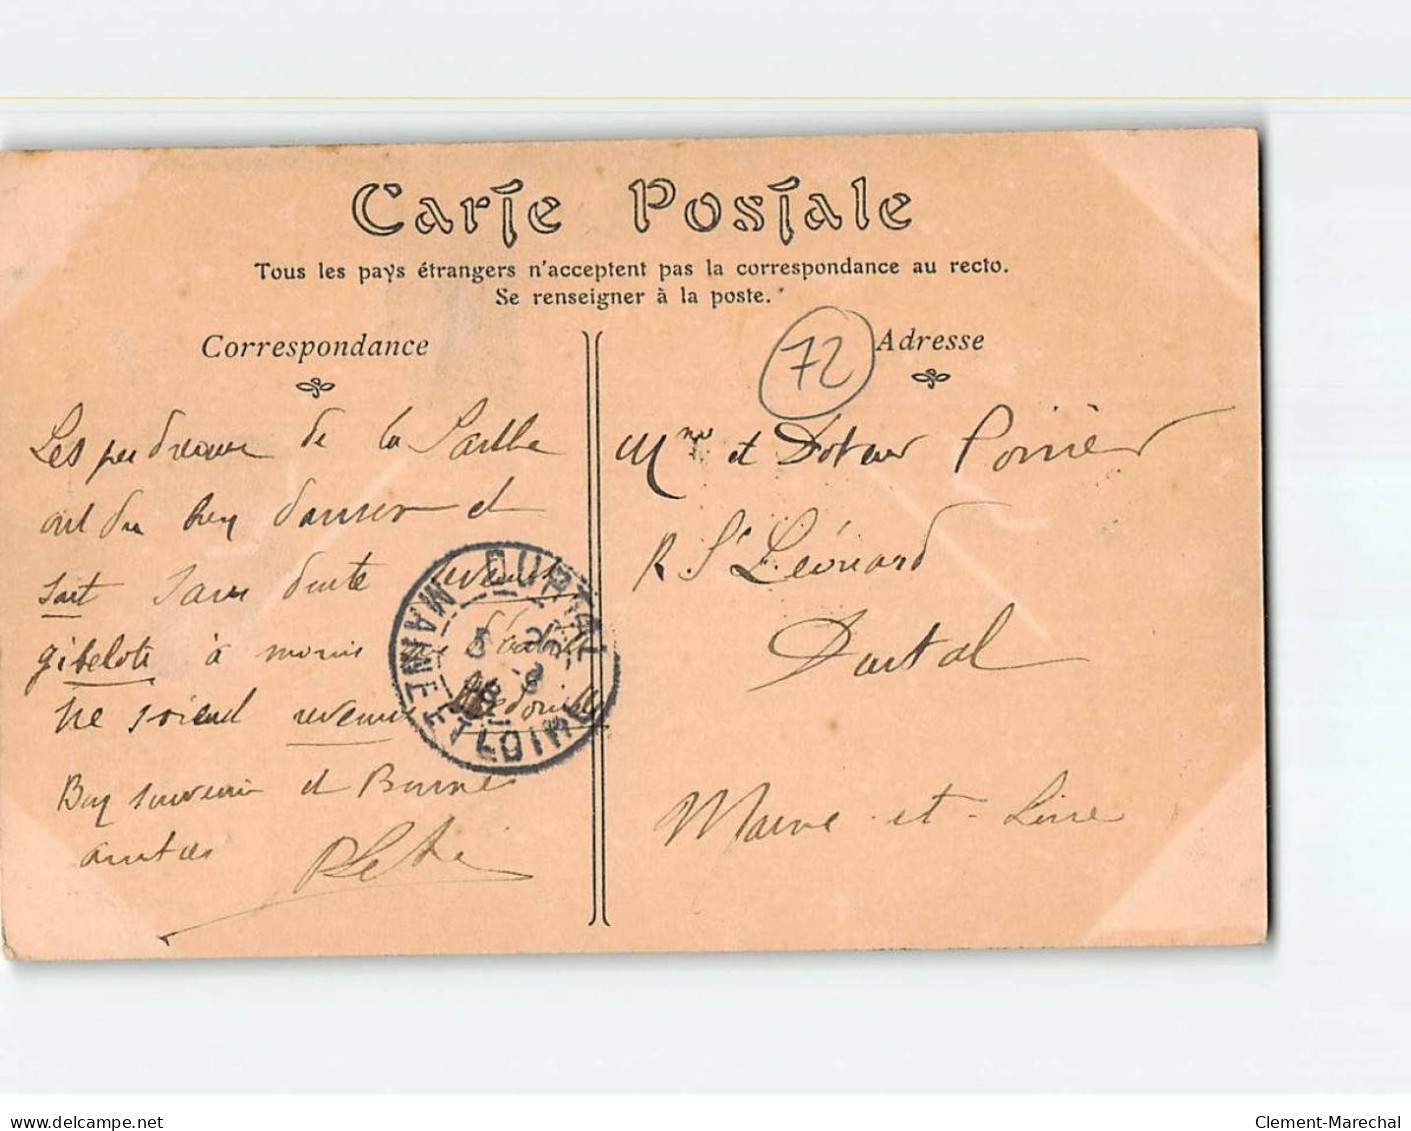 Carte Postale
Tous les pays étrangers n'acceptent pas la correspondance au recto.
Se renseigner à la poste.
Correspondance
Adresse
72
Les perdreaux de la Sarthe
ont du bien danser et
sont sans doute revenus
gibelote à moins
ne soient revenus
Bon souvenir et Bonnes
amitiés
Mme et Docteur Poirier
R St Léonard
Durtal
Maine-et-Loire
DURTAL
MAINE ET LOIRE
delcampe.net
Clement-Marechal